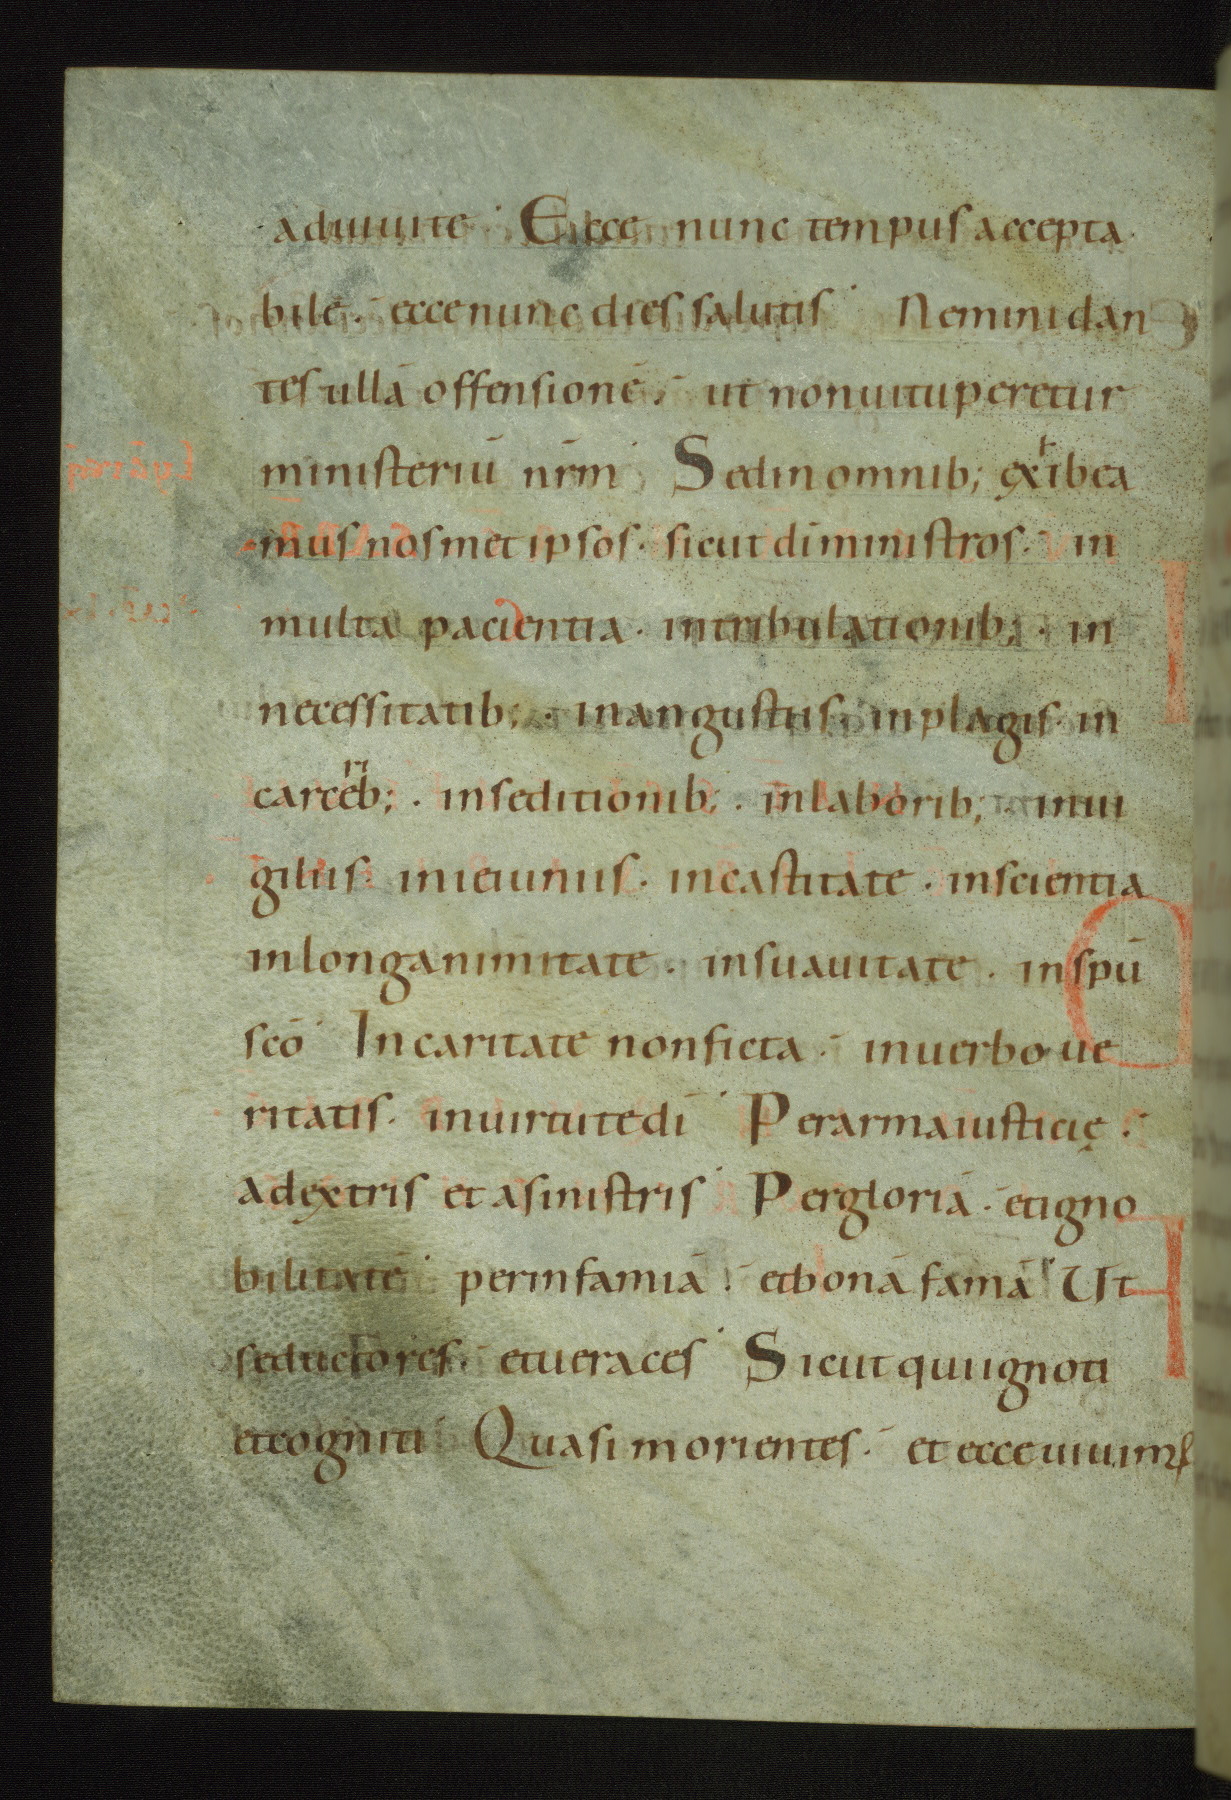 adiuui te. Ecce nunc tempus accepta
bile. ecce nunc dies salutis. Nemini dan
tes ullā offensionē. ut non uituperetur
ministeriū nr̄m. Sed in omnib; exhibea
mus nosmet ipsos. sicut dī ministros. in
multa pacientia. in tribulationib;. in
necessitatib;. in angustiis. in plagis. in
carcerib;. in seditionib;. in laborib;. in ui
giliis. in ieiuniis. in castitate. in scientia
in longanimitate. in suauitate. in spū
scō. In caritate non ficta. in uerbo ue
ritatis. in uirtute dī. Per arma iusticię.
a dextris et a sinistris. Per gloriā. et igno
bilitatē. per infamiā. et bonā famā. Ut
seductores. et ueraces. Sicut qui ignoti
et cogniti. Quasi morientes. et ecce uiuimus